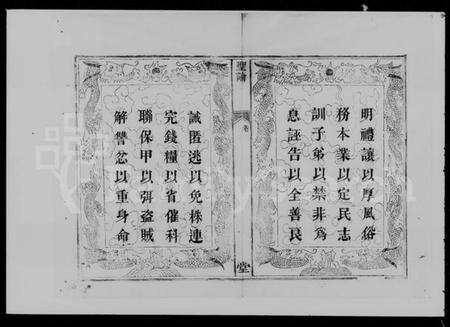 明禮讓以厚風俗
務本業以定民志
訓子弟以禁非為
息誣告以全善良
聖諭
卷
堂
誡匿逃以免株連
完錢糧以省催科
聯保甲以弭盜賊
解讐忿以重身命